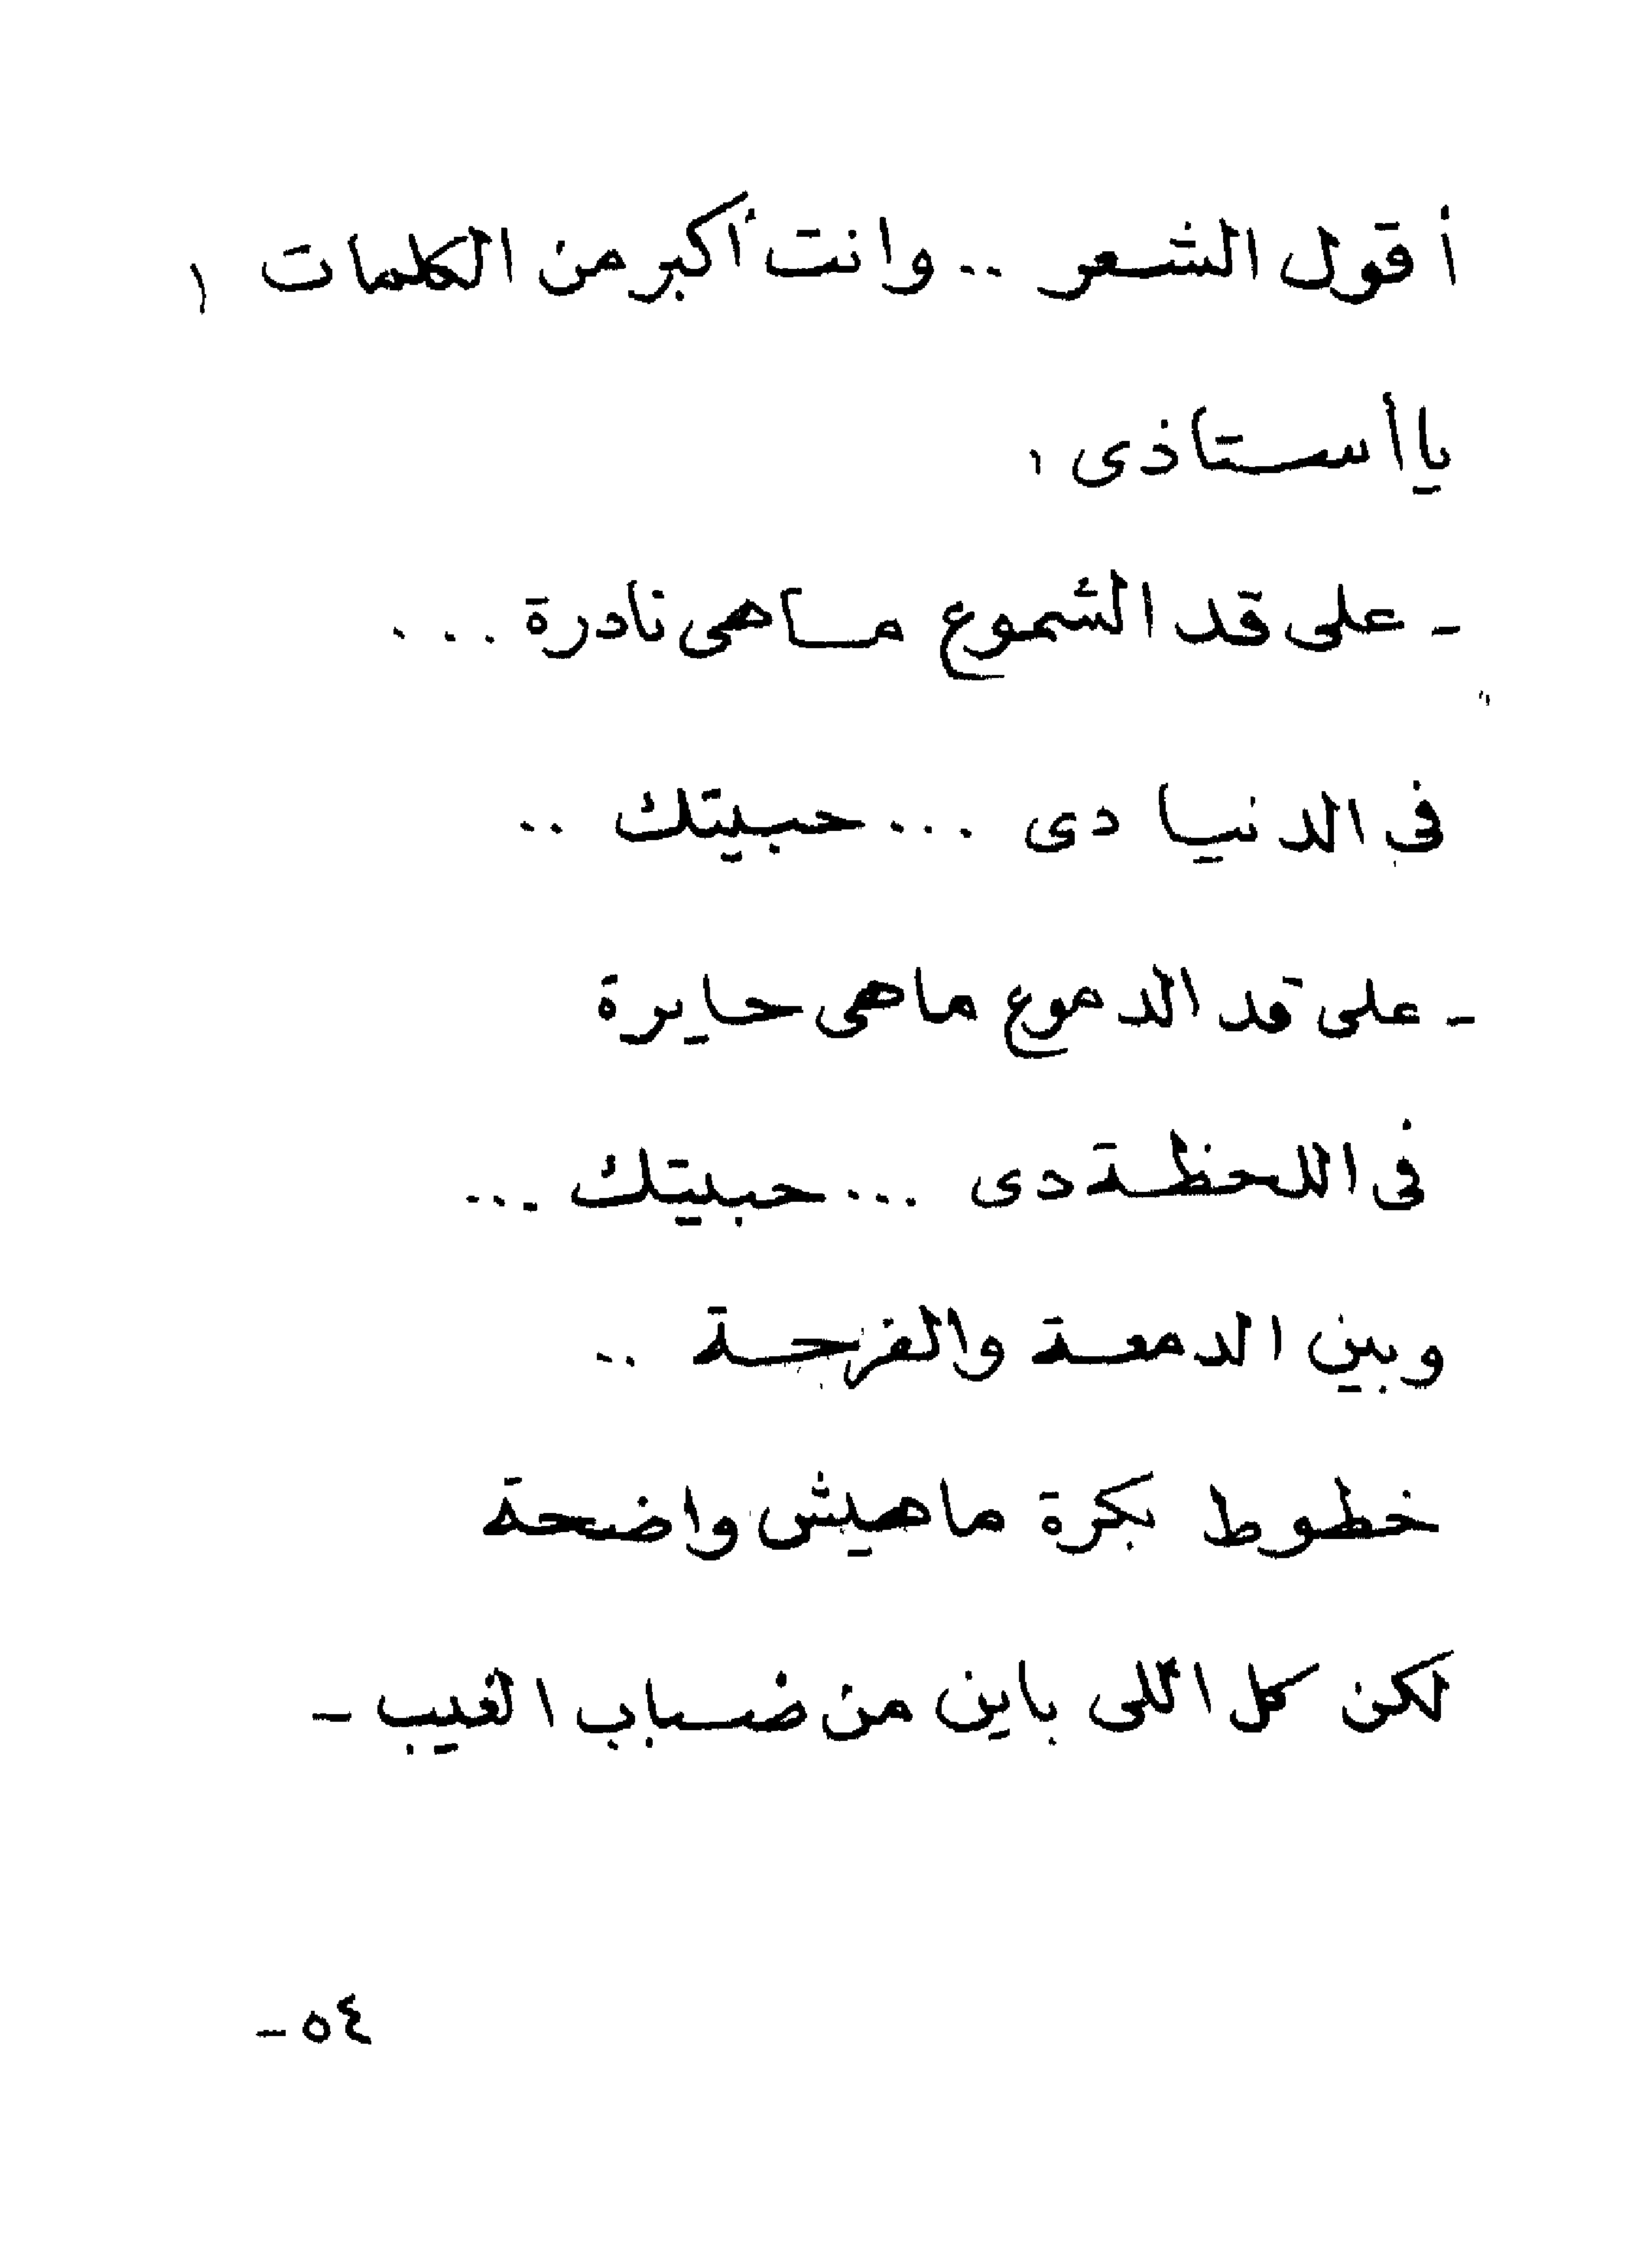 أقول الشعر .. وانت أكبر من الكلمات !
ياأستاذى ،
- على قد الشموع ماهى نادرة ...
فى الدنيا دى ... حبيتك ..
- على قد الدموع ماهى حايرة
فى اللحظة دى ... حبيتك ...
وبين الدمعة والفرحة ..
خطوط بكرة ماهيش واضحة
لكن كل اللى باين من ضباب الغيب -
٥٤ -